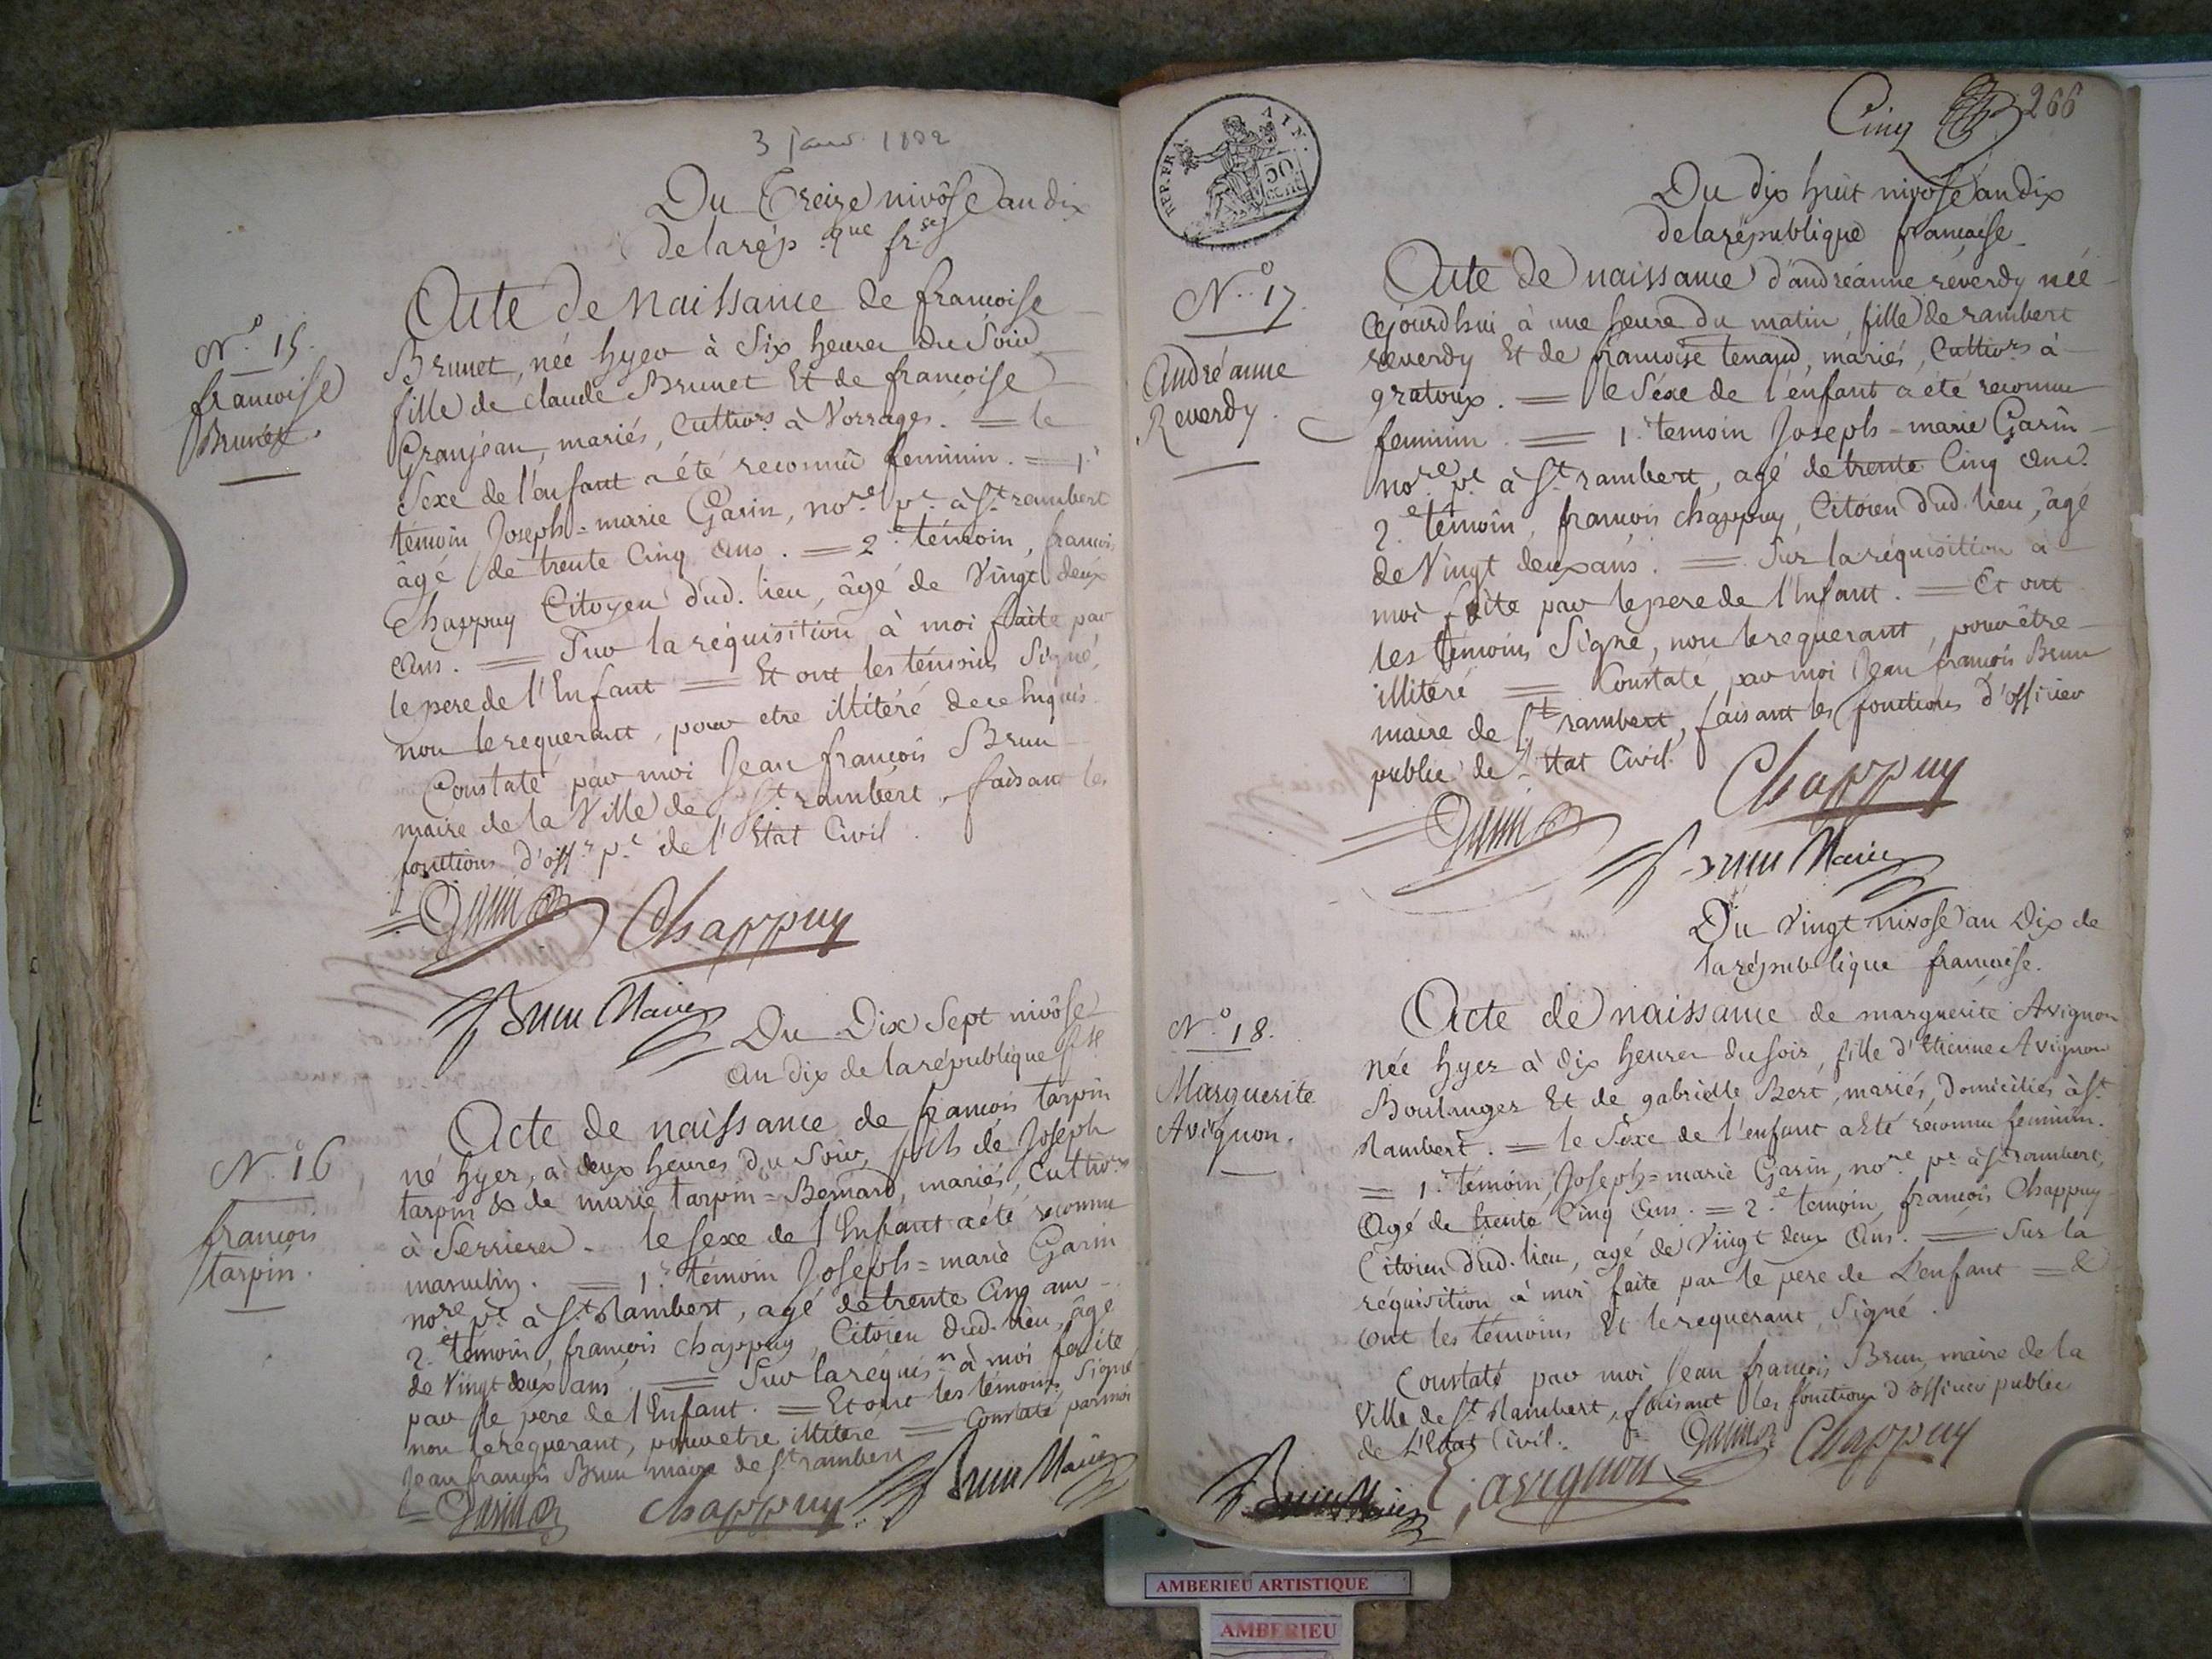 3 janv. 1802
Du Treize nivôse an dix
de la rép.que fr.se
N.o 15.
francoise
Brunet.
Acte de Naissance de francoise
Brunet, née hyer à Six heures du Soir
fille de claude Brunet Et de francoise
Granjean, mariés, Cultiv.rs à Vorrages. = le
Sexe de l'enfant a été reconnu feminin. = 1.r
témoin Joseph=marie Garin, no.re p.c à S.t rambert
âgé de trente Cinq ans. = 2.e témoin, francois
Chappuy Citoyen dud. lieu, âgé de Vingt deux
ans. = Sur la réquisition à moi faite par
le pere de l'Enfant = Et ont les témoins Signé,
non le requerant, pour etre illitéré de ce Enquis.
Constaté par moi Jean françois Brun
maire de la Ville de S.t rambert, faisant les
fonctions d'off.r p.c de l'Etat Civil.
Garin Chappuy
Brun Maire
Du Dix Sept nivôse
an dix de la république f.se
N.o 16
francois
tarpin.
Acte de naissance de francois tarpin
né hyer, à deux heures du Soir, fils de Joseph
tarpin & de marie tarpin=Bernard, mariés, Cultiv.rs
à Serrieres. le Sexe de l'Enfant a été reconnu
masculin. = 1.r témoin Joseph=marie Garin
no.re p.c à S.t Rambert, agé de trente Cinq ans.
2.e témoin, francois Chappuy, Citoien dud. lieu, âgé
de Vingt deux ans. = Sur la réquis.n à moi faite
par le pere de l'Enfant. = Et ont les témoins Signé
non le requerant, pour etre illitéré = Constaté par moi
Jean françois Brun maire de S.t rambert
Garin Chappuy Brun Maire
Cinq 266
REP. FRA AIN.
50
cent
Du dix huit nivôse an dix
de la république francaise
N.o 17.
Andréanne
Reverdy.
Acte de naissance d'andréanne reverdy née
cejourdhui à une heure du matin, fille de rambert
reverdy Et de francoise tenand, mariés, Cultiv.rs à
gratoux. = le Séxe de l'enfant a été reconnu
feminin. = 1.r temoin Joseph=marie Garin
no.re p.c à S.t rambert, agé de trente Cinq ans.
2.e témoin, francois Chappuy, Citoien dud. lieu, âgé
de Vingt deux ans. = Sur la réquisition à
moi faite par le pere de l'Enfant. = Et ont
les témoins Signé, non le requerant, pour être
illitéré = Constaté par moi Jean francois Brun
maire de S.t rambert, faisant les fonctions d'officier
public de l'Etat Civil.
Chappuy
Garin
Brun Maire
Du Vingt nivose an Dix de
la république francaise.
N.o 18.
Marguerite
Avignon.
Acte de naissance de marguerite Avignon
née hyer à dix heures du soir, fille d'Etienne Avignon
Boulanger Et de gabrielle Bert, mariés, Domiciliés à S.t
Rambert. = le Sexe de l'enfant a Eté reconnu feminin.
= 1.r témoin, Joseph=marie Garin, no.re p.c à S.t rambert,
Agé de trente Cinq Ans. = 2.e témoin, francois Chappuy
Citoien dud. lieu, agé de Vingt deux Ans. = Sur la
réquisition à moi faite par le pere de L'enfant = &
ont les témoins Et le requerant Signé.
Constaté par moi Jean francois Brun, maire de la
Ville de S.t Rambert, faisant les fonctions d'officier public
de L'Etat Civil. Garin Chappuy
Brun Maire E. avignon
AMBERIEU ARTISTIQUE
AMBERIEU